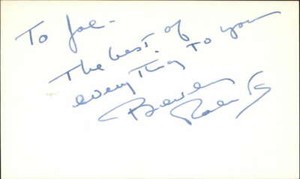 To Joe-
The best of
everything to you
Beverly
Roberts